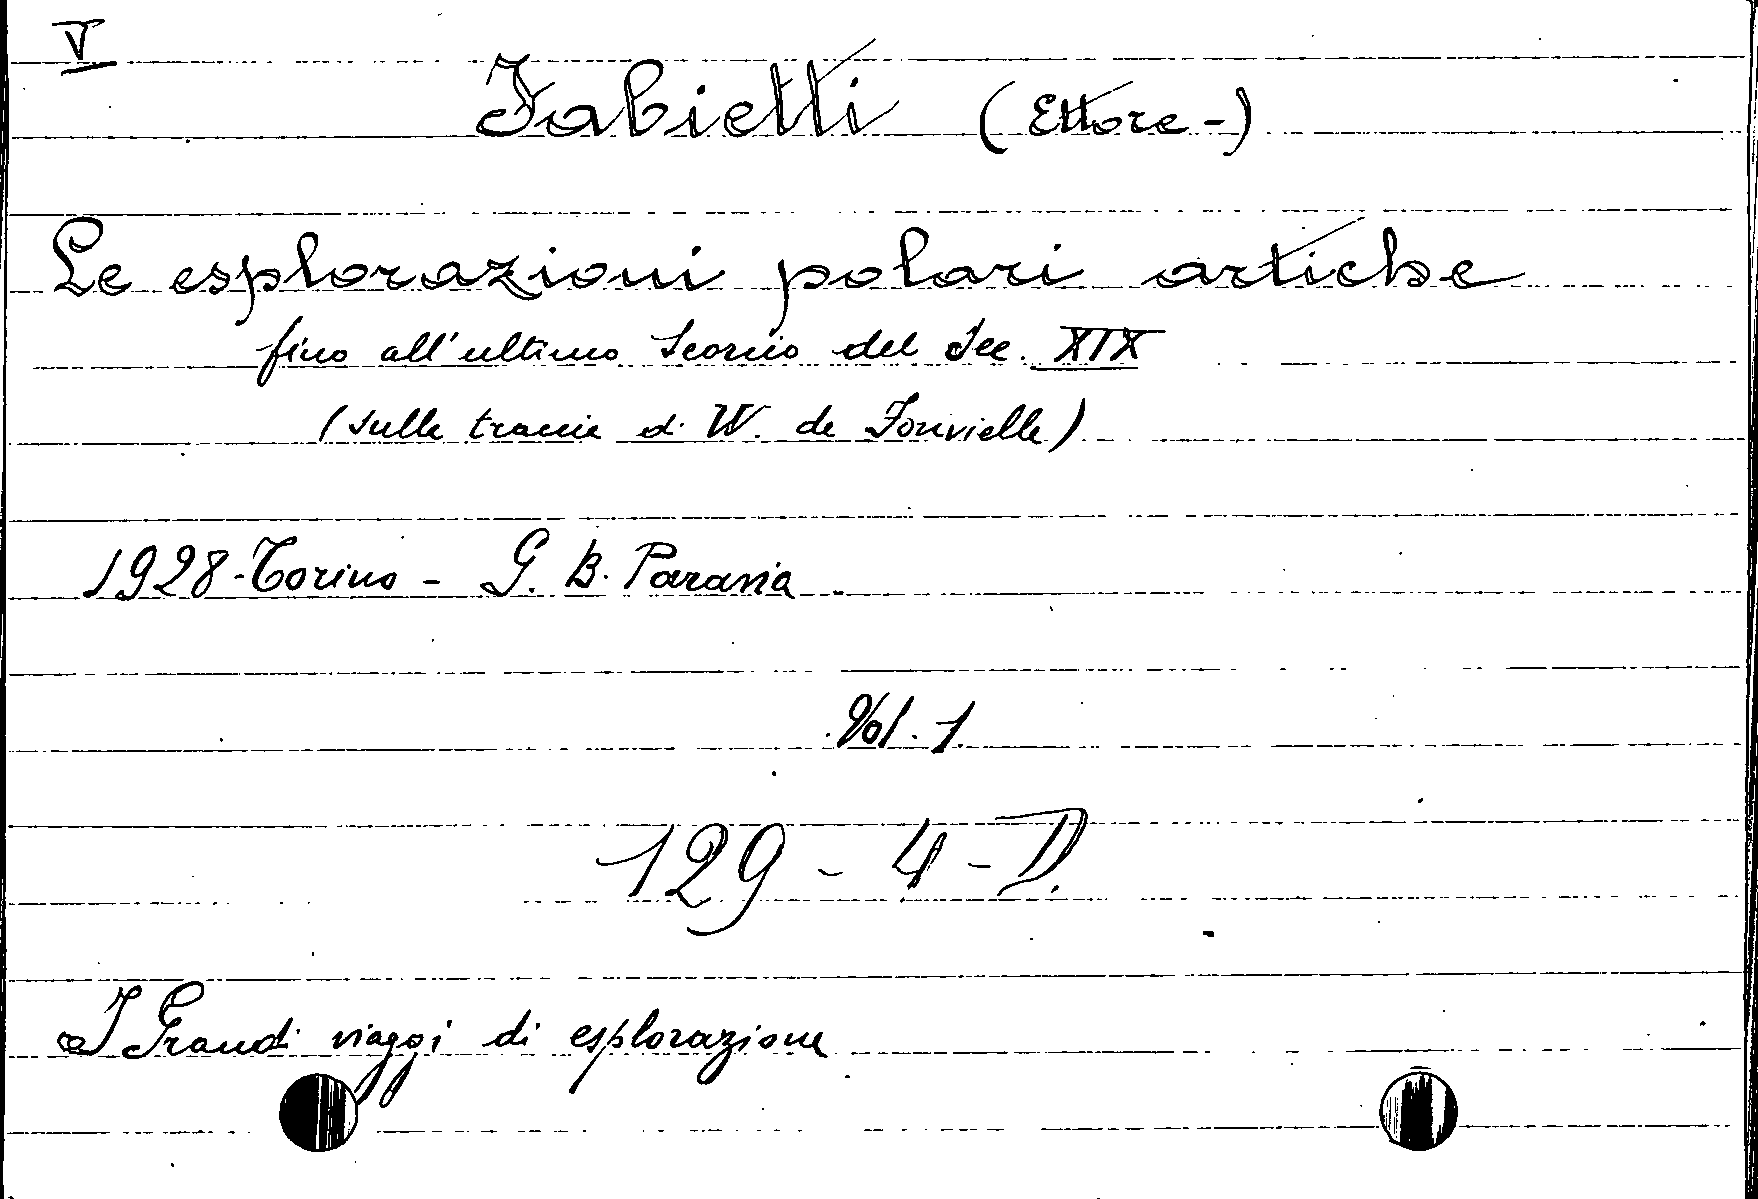 V
Fabietti (Ettore-)
Le esplorazioni polari artiche
fino all'ultimo Scorcio del Sec. XIX
(sulle traccie di W. de Fonvielle)
1928-Torino - G. B. Paravia
Vol. 1
129 - 4 - D.
I Grandi viaggi di esplorazione